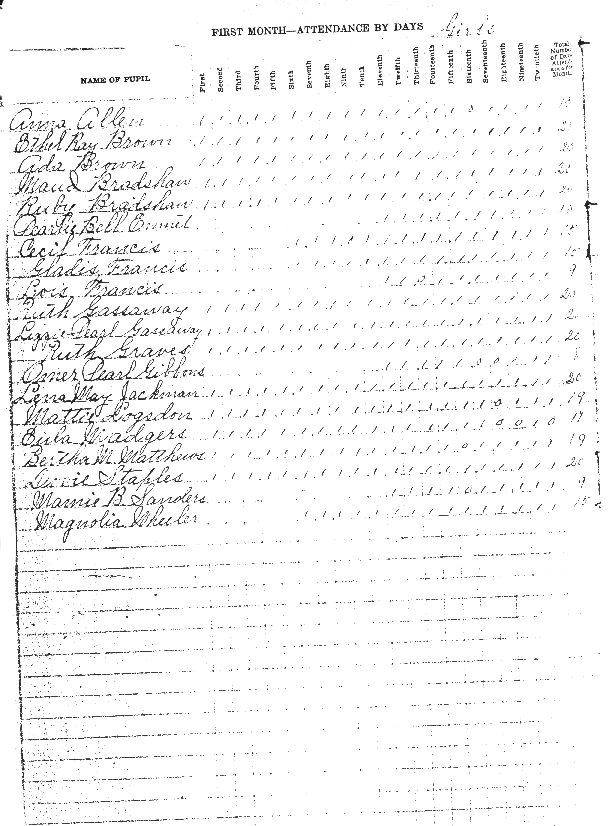 FIRST MONTH—ATTENDANCE BY DAYS Girls
NAME OF PUPIL First Second Third Fourth Fifth Sixth Seventh Eighth Ninth Tenth Eleventh Twelfth Thirteenth Fourteenth Fifteenth Sixteenth Seventeenth Eighteenth Nineteenth Twentieth Total Number of Days
Anna Allen 19
Ethel Ray Brown
Ada Brown 20
Maud Bradshaw 20
Ruby Bradshaw
Pearlie Bell Emmit
Cecil Francis 15
Gladis Francis 15
Lois Francis 9
Ruth Gassaway 20
Lizzie Pearl Gassaway
Ruth Graves 20
Omer Pearl Gibbons 8
Lena May Jackman 20
Mattie Logsdon 19
Eula Madgers 17
Bertha M. Matthews 19
Staples 20
Mamie B Sanders 9
Magnolia Wheeler 15